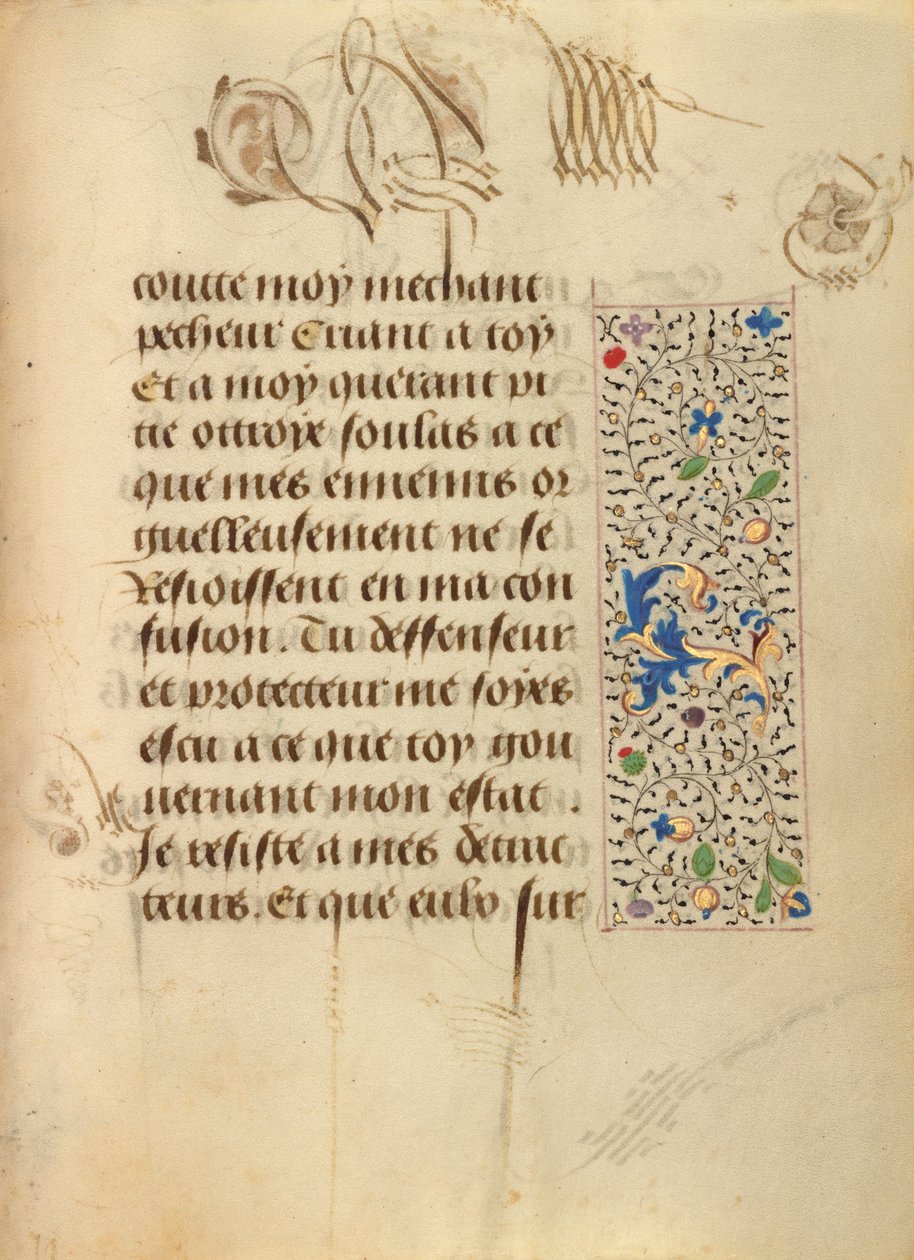 coutte moÿ mechant
pecheur Criant a toÿ
Et a moÿ querant pi
tie ottroye soulas a ce
que mes ennemis or
guelleusement ne se
Resioissent en ma con
fusion. Tu deffenseur
et protecteur me soyes
escu a ce que toy gou
uernant mon estat .
Je resiste a mes detrac
teurs. Et que eulx sur